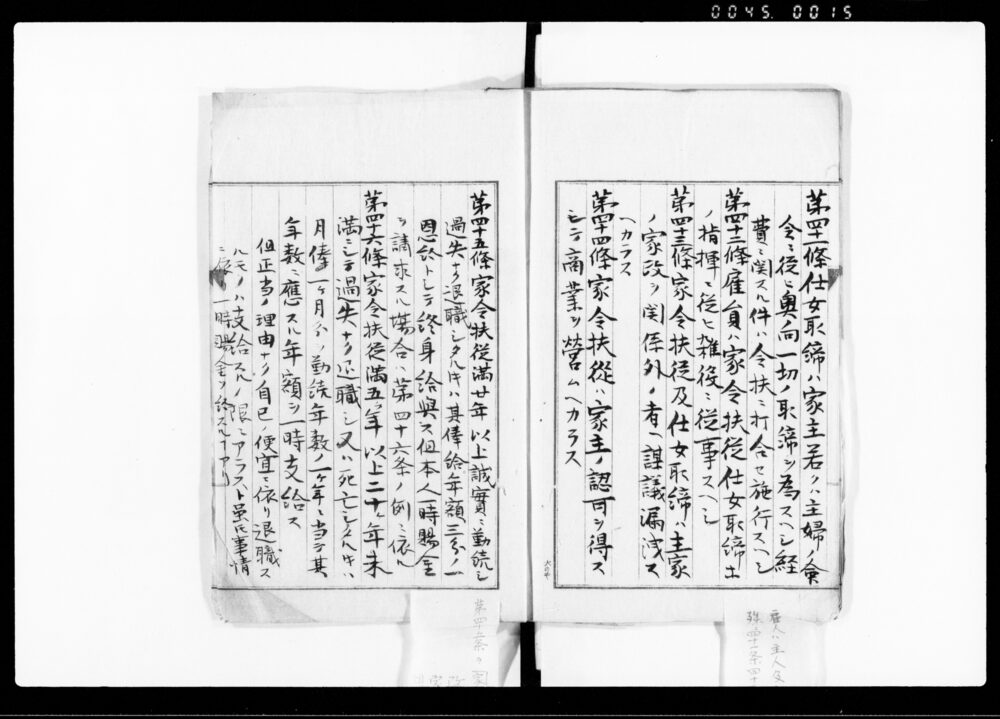 0045.0015
第四十一條仕女取締ハ家主若クハ主婦ノ命
令ニ從ヒ奥向一切ノ取締ヲ為スヘシ経
費ニ関スル件ハ令扶ニ打合セ施行スヘシ
第四十二條雇員ハ家令扶従仕女取締士
ノ指揮ニ従ヒ雑役ニ従事スヘシ
第四十三條家令扶従及仕女取締ハ主家
ノ家政ヲ関係外ノ者ヘ謀議漏洩ス
ヘカラス
第四十四條家令扶從ハ家主ノ認可ヲ得ス
シテ商業ヲ營ムヘカラス
第四十五條家令扶従満廿年以上誠實ニ勤続シ
過失ナク退職シタルトキハ其俸給年額三分ノ一
恩給トシテ終身給與ス但本人一時賜金
ヲ請求スル場合ハ第四十六条ノ例ニ依ル
第四十六條家令扶従満五ヶ年以上二十ヶ年未
満ニシテ過失ナク退職シ又ハ死亡シタルトキハ
月俸一ヶ月分ノ勤続年数ノ一ヶ年ニ当テ其
年数ニ應スル年額ヲ一時支給ス
但正当ノ理由ナク自己ノ便宜ニ依リ退職ス
ルモノハ支給スルノ限ニアラスト虽氏事情
ニ依リ一時賜金ヲ給スルコトアリ
雇人ハ主人及
第四十五条